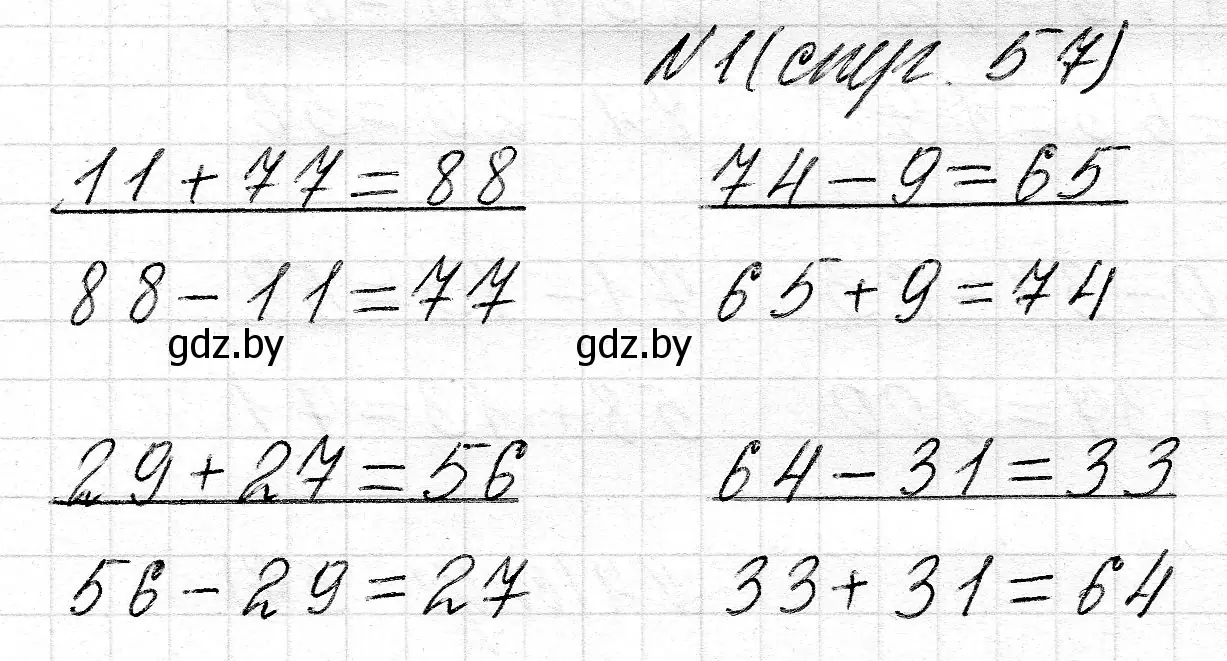 N1(стр. 57)
11+77=88 74-9=65
88-11=77 65+9=74
gdz.by gdz.by
29+27=56 64-31=33
56-29=27 33+31=64